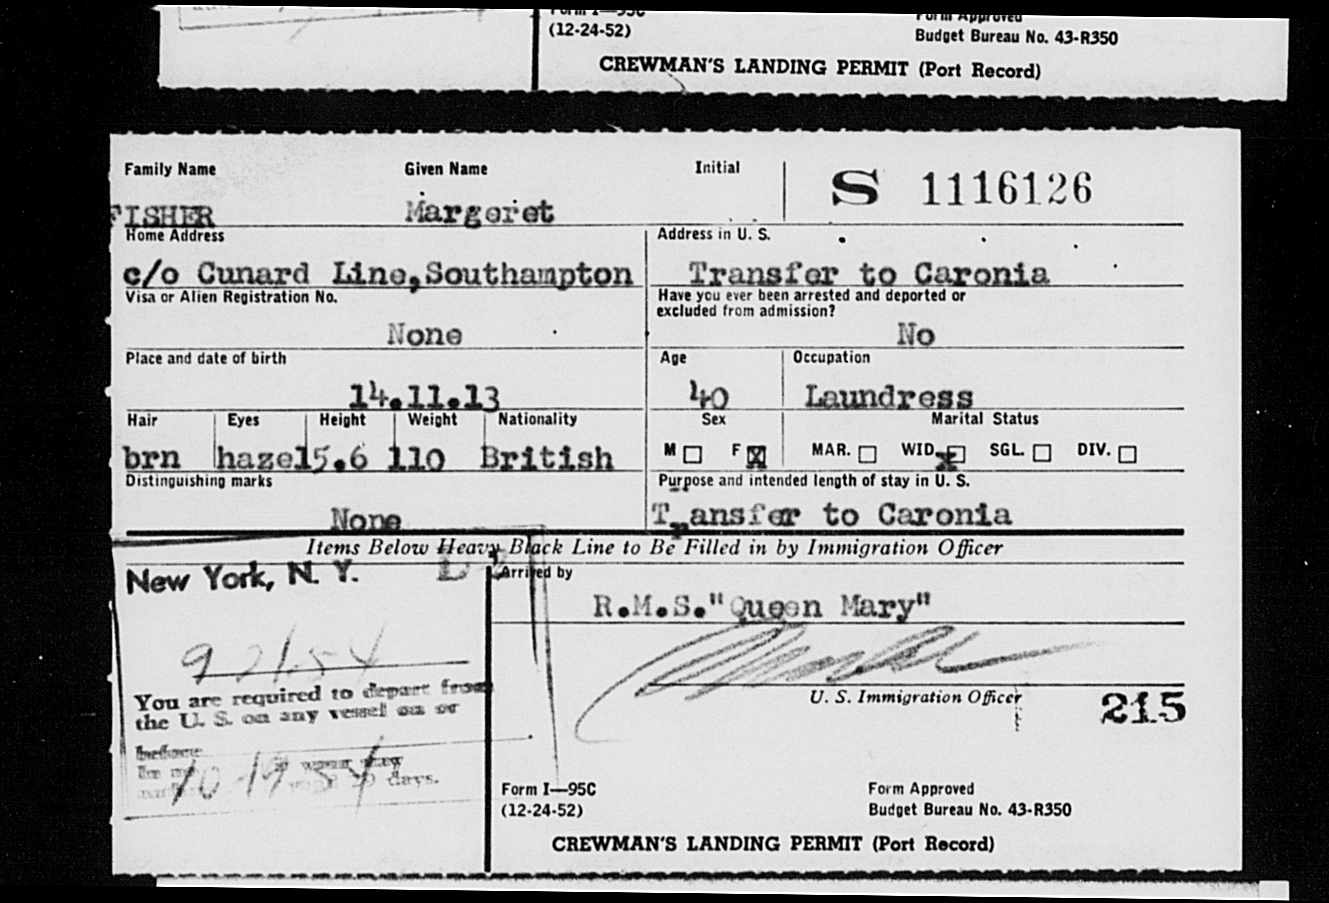 Form I—95C
(12-24-52)
Form Approved
Budget Bureau No. 43-R350
CREWMAN'S LANDING PERMIT (Port Record)
Family Name Given Name Initial
S 1116126
FISHER Margeret
Home Address Address in U. S.
c/o Cunard Line,Southampton Transfer to Caronia
Visa or Alien Registration No. Have you ever been arrested and deported or
excluded from admission?
None No
Place and date of birth Age Occupation
14.11.13 40 Laundress
Hair Eyes Height Weight Nationality Sex Marital Status
brn hazel 5.6 110 British M F X MAR. WID. X SGL. DIV.
Distinguishing marks Purpose and intended length of stay in U. S.
None T ansfer to Caronia
Items Below Heavy Black Line to Be Filled in by Immigration Officer
New York, N. Y. Arrived by
R.M.S."Queen Mary"
9 21 54
You are required to depart from
the U. S. on any vessel on or
before
10-19-54
days.
U. S. Immigration Officer
215
Form I—95C
(12-24-52)
Form Approved
Budget Bureau No. 43-R350
CREWMAN'S LANDING PERMIT (Port Record)